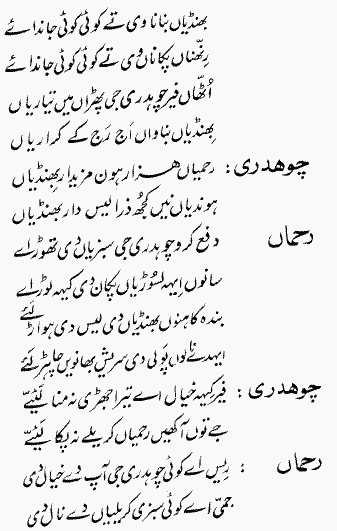 بھنڈیاں بنانا وی تے کوئی کوئی جاندا اے
رِنّھناں پکاناں وی تے کوئی کوئی جاندا اے
اُٹھّاں فیر چوہدری جی پھڑاں میں تیاریاں
بھنڈیاں بناواں اَج رَج کے کراریاں
چوھدری: رحمیاں ھزار ہون مزیدار بھنڈیاں
ہوندیاں نیں کجھُ ذرا لیس دار بھنڈیاں
رحماں دفع کرو چوہدری جی سبزیاں دی تھوڑ اے
سانوں ایہہ لسُوڑیاں پکان دی کیہہ لوڑ اے
بندہ کاہنوں بھنڈیاں دی لیس دی ہواڑ لئے
ایہدے نالوں پَولی دی سریش بھانویں چاہڑ لئے
چوھدری: فیر کیہہ خیال اے تیرا جھڑی نہ منا لیٔیے
جے توں آکھیں رحمیاں کریلے نہ پکا لیٔیے
رحماں : رِیس اے کوئی چوہدری جی آپ دے خیال دی
جمّی اے کوئی سبزی کریلیاں دے نال دی